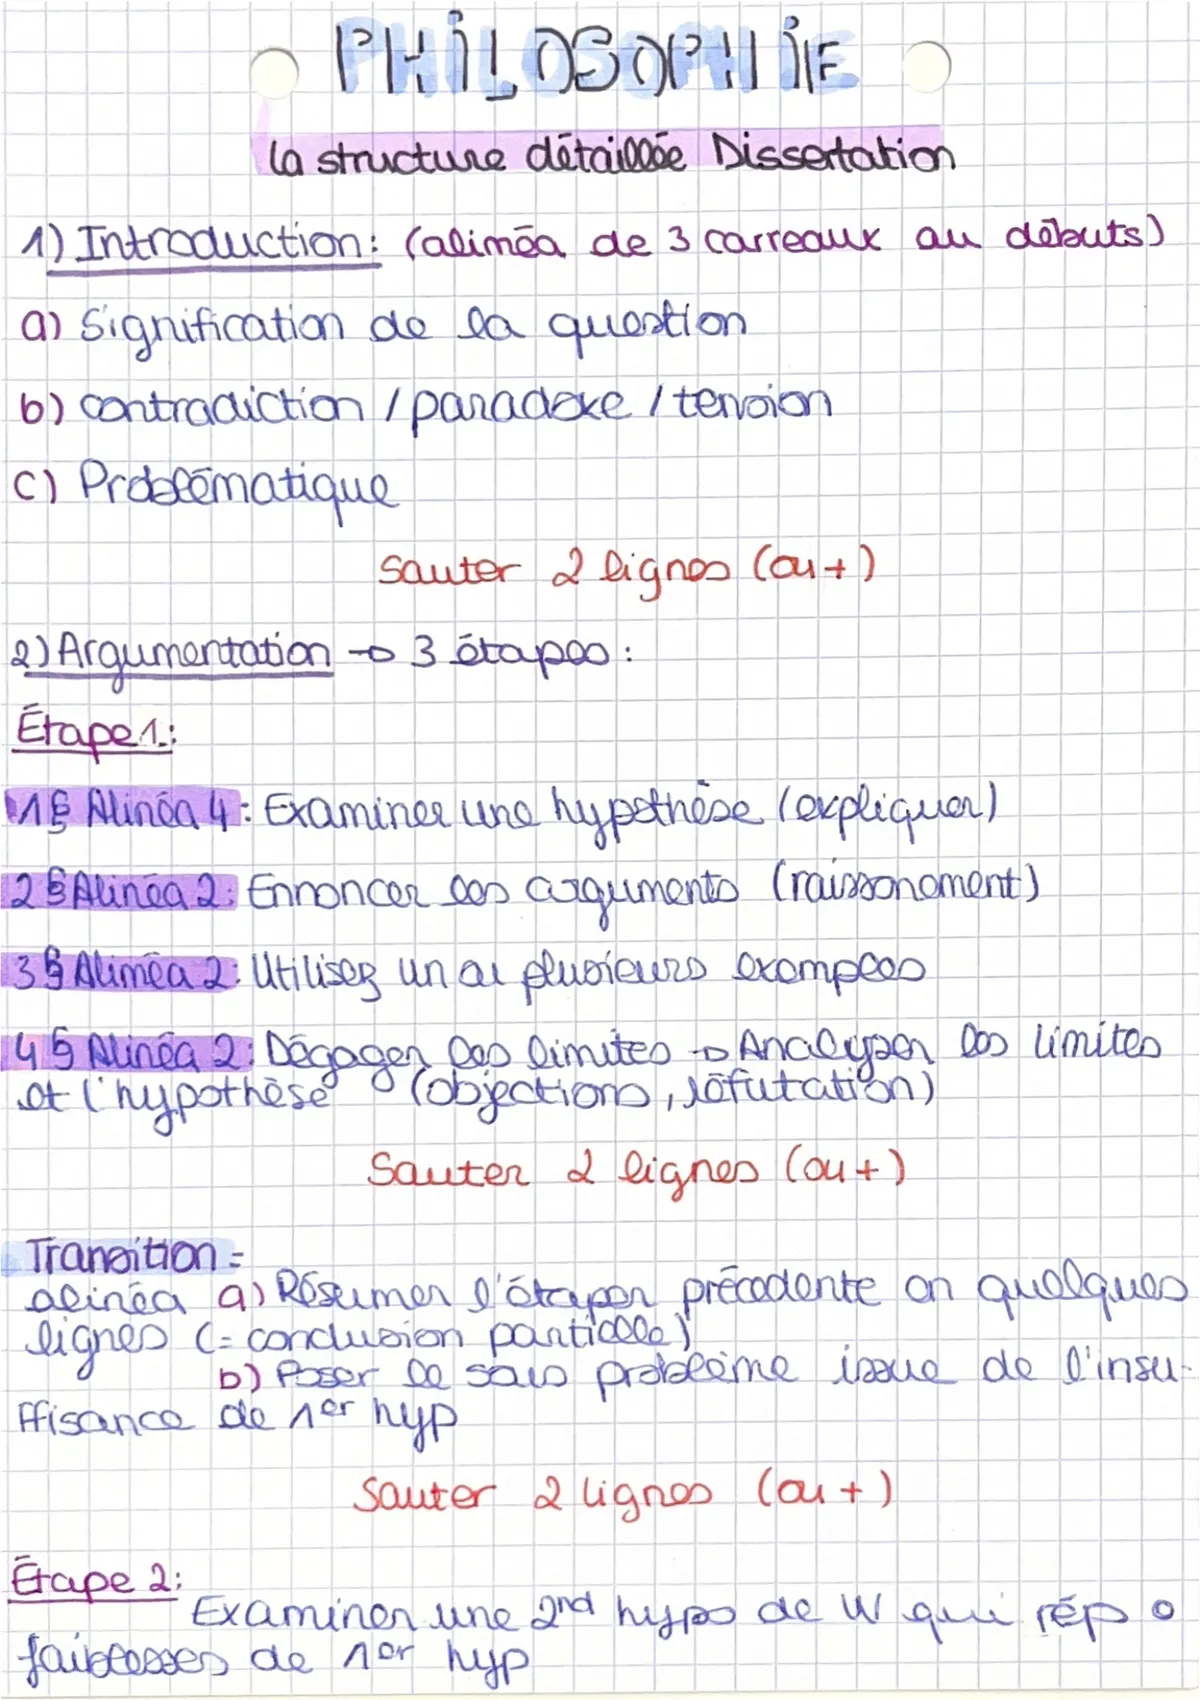 PHILOSOPHIE
La structure détaillée Dissertation
1) Introduction: (alinéa de 3 carreaux au débuts)
a) Signification de la question
b) contradiction / paradoxe / tension
c) Problématique
Sauter 2 lignes (ou +)
2) Argumentation → 3 étapes :
Étape 1:
1§ Alinéa 4: Examiner une hypothèse (expliquer)
2§ Alinéa 2: Ennoncer les arguments (raissonement)
3§ Alinéa 2: Utilisez un ou plusieurs exemples
4§ Alinéa 2: Dégager les limites → Analyser les limites
et l'hypothèse (objections, réfutation)
Sauter 2 lignes (ou +)
Transition =
alinéa a) Résumer l'étaper précedente en quelques
lignes (= conclusion partielle)
b) Poser le sous problème issue de l'insu-
ffisance de 1er hyp
Sauter 2 lignes (ou +)
Étape 2:
Examiner une 2nd hyps de W qui rép o
faiblesses de 1er hyp